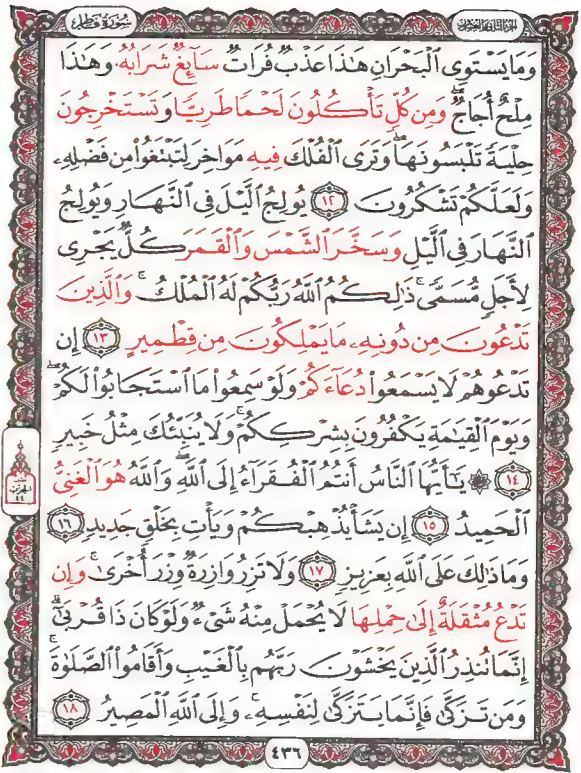 سُورَةُ فَاطِرٍ
الجزء الثاني والعشرون
وَمَا يَسْتَوِى ٱلْبَحْرَانِ هَٰذَا عَذْبٌ فُرَاتٌ سَآئِغٌ شَرَابُهُۥ وَهَٰذَا
مِلْحٌ أُجَاجٌ ۖ وَمِن كُلٍّ تَأْكُلُونَ لَحْمًا طَرِيًّا وَتَسْتَخْرِجُونَ
حِلْيَةً تَلْبَسُونَهَا ۖ وَتَرَى ٱلْفُلْكَ فِيهِ مَوَاخِرَ لِتَبْتَغُوا۟ مِن فَضْلِهِۦ
وَلَعَلَّكُمْ تَشْكُرُونَ ۝١٢ يُولِجُ ٱلَّيْلَ فِى ٱلنَّهَارِ وَيُولِجُ
ٱلنَّهَارَ فِى ٱلَّيْلِ وَسَخَّرَ ٱلشَّمْسَ وَٱلْقَمَرَ كُلٌّ يَجْرِى
لِأَجَلٍ مُّسَمًّى ۚ ذَٰلِكُمُ ٱللَّهُ رَبُّكُمْ لَهُ ٱلْمُلْكُ ۚ وَٱلَّذِينَ
تَدْعُونَ مِن دُونِهِۦ مَا يَمْلِكُونَ مِن قِطْمِيرٍ ۝١٣ إِن
تَدْعُوهُمْ لَا يَسْمَعُوا۟ دُعَآءَكُمْ وَلَوْ سَمِعُوا۟ مَا ٱسْتَجَابُوا۟ لَكُمْ ۖ
وَيَوْمَ ٱلْقِيَٰمَةِ يَكْفُرُونَ بِشِرْكِكُمْ ۚ وَلَا يُنَبِّئُكَ مِثْلُ خَبِيرٍ
۝١٤ ۞ يَٰٓأَيُّهَا ٱلنَّاسُ أَنتُمُ ٱلْفُقَرَآءُ إِلَى ٱللَّهِ ۖ وَٱللَّهُ هُوَ ٱلْغَنِىُّ
ٱلْحَمِيدُ ۝١٥ إِن يَشَأْ يُذْهِبْكُمْ وَيَأْتِ بِخَلْقٍ جَدِيدٍ ۝١٦
وَمَا ذَٰلِكَ عَلَى ٱللَّهِ بِعَزِيزٍ ۝١٧ وَلَا تَزِرُ وَازِرَةٌ وِزْرَ أُخْرَىٰ ۚ وَإِن
تَدْعُ مُثْقَلَةٌ إِلَىٰ حِمْلِهَا لَا يُحْمَلْ مِنْهُ شَىْءٌ وَلَوْ كَانَ ذَا قُرْبَىٰٓ ۗ
إِنَّمَا تُنذِرُ ٱلَّذِينَ يَخْشَوْنَ رَبَّهُم بِٱلْغَيْبِ وَأَقَامُوا۟ ٱلصَّلَوٰةَ ۚ
وَمَن تَزَكَّىٰ فَإِنَّمَا يَتَزَكَّىٰ لِنَفْسِهِۦ ۚ وَإِلَى ٱللَّهِ ٱلْمَصِيرُ ۝١٨
٤٣٦